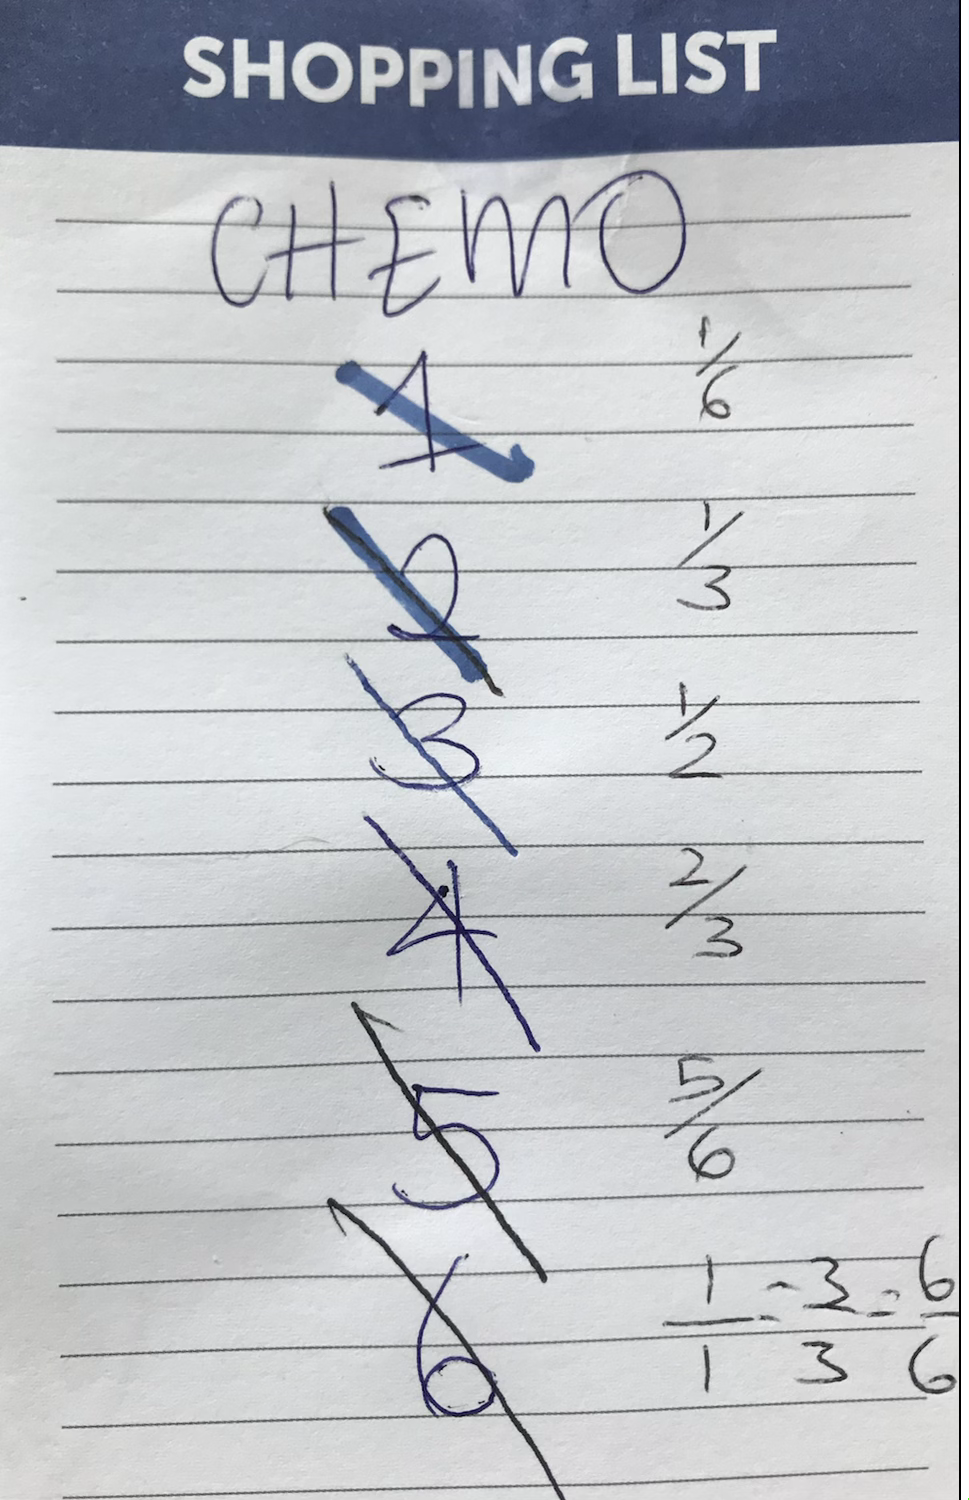 SHOPPING LIST
CHEMO
1 1/6
2 1/3
3 1/2
4 2/3
5 5/6
6 1/1 = 3/3 = 6/6